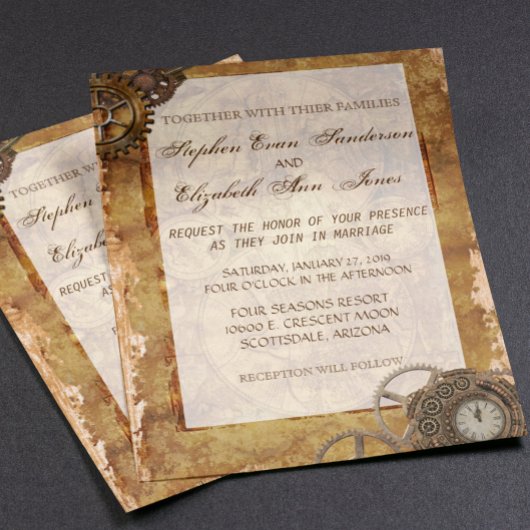 TOGETHER WITH THIER FAMILIES
Stephen Evan Sanderson
AND
Elizabeth Ann Jones
REQUEST THE HONOR OF YOUR PRESENCE
AS THEY JOIN IN MARRIAGE
SATURDAY, JANUARY 27, 2019
FOUR O'CLOCK IN THE AFTERNOON
FOUR SEASONS RESORT
10600 E. CRESCENT MOON
SCOTTSDALE, ARIZONA
RECEPTION WILL FOLLOW
TOGETHER WITH
Stephen
Elizabeth
REQUEST THE HO
AS TH
SATUR
FOUR O'C
FOUR
10600
SCOT
RECEP